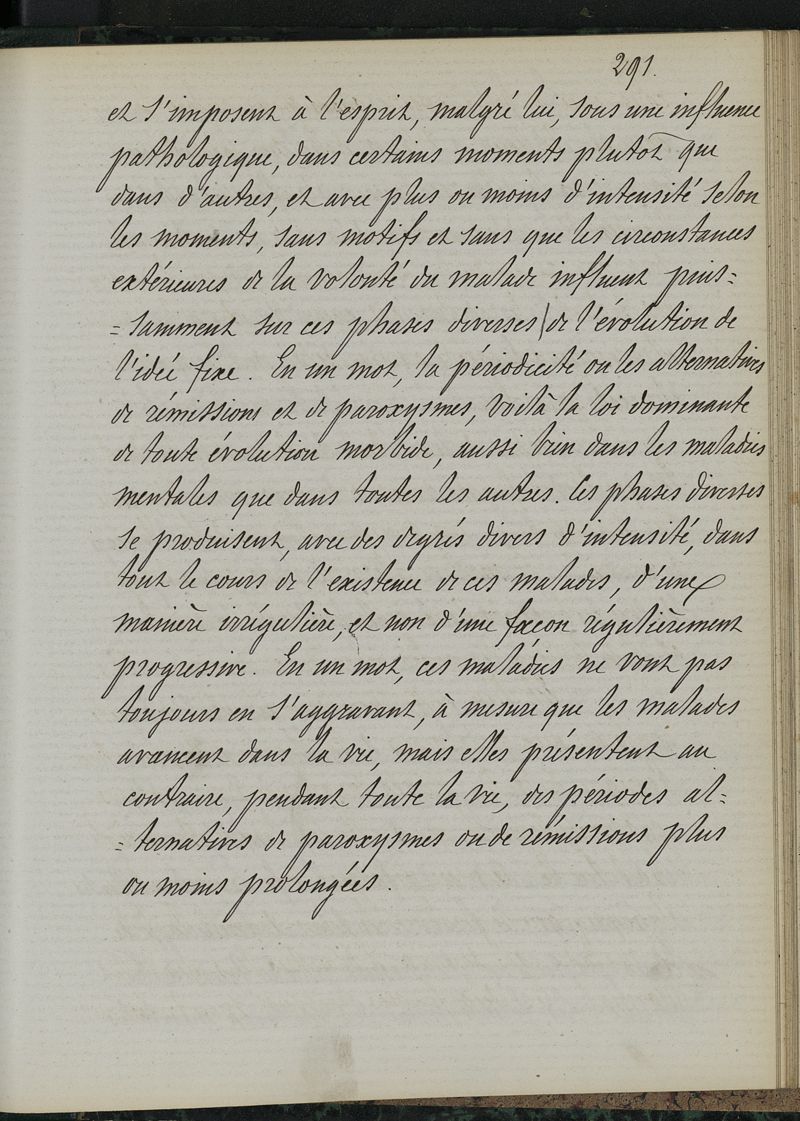 291.
et s'imposent à l'esprit, malgré lui, sous une influence
pathologique, dans certains moments plutot que
dans d'autres, et avec plus ou moins d'intensité selon
les moments, sans motifs et sans que les circonstances
extérieures de la volonté du malade influent puis=
=samment sur ces phases diverses de l'évolution de
l'idée fixe. En un mot, la périodicité ou les alternatives
de rémissions et de paroxysmes, voilà la loi dominante
de toute évolution morbide, aussi bien dans les maladies
mentales que dans toutes les autres. Ces phases diverses
se produisent, avec des degrés divers d'intensité, dans
tout le cours de l'existence de ces malades, d'une
manière irrégulière, et non d'une façon régulièrement
progressive. En un mot, ces maladies ne vont pas
toujours en s'aggravant, à mesure que les malades
avancent dans la vie, mais elles présentent au
contraire, pendant toute la vie, des périodes al=
=ternatives de paroxysmes ou de rémissions plus
ou moins prolongées.